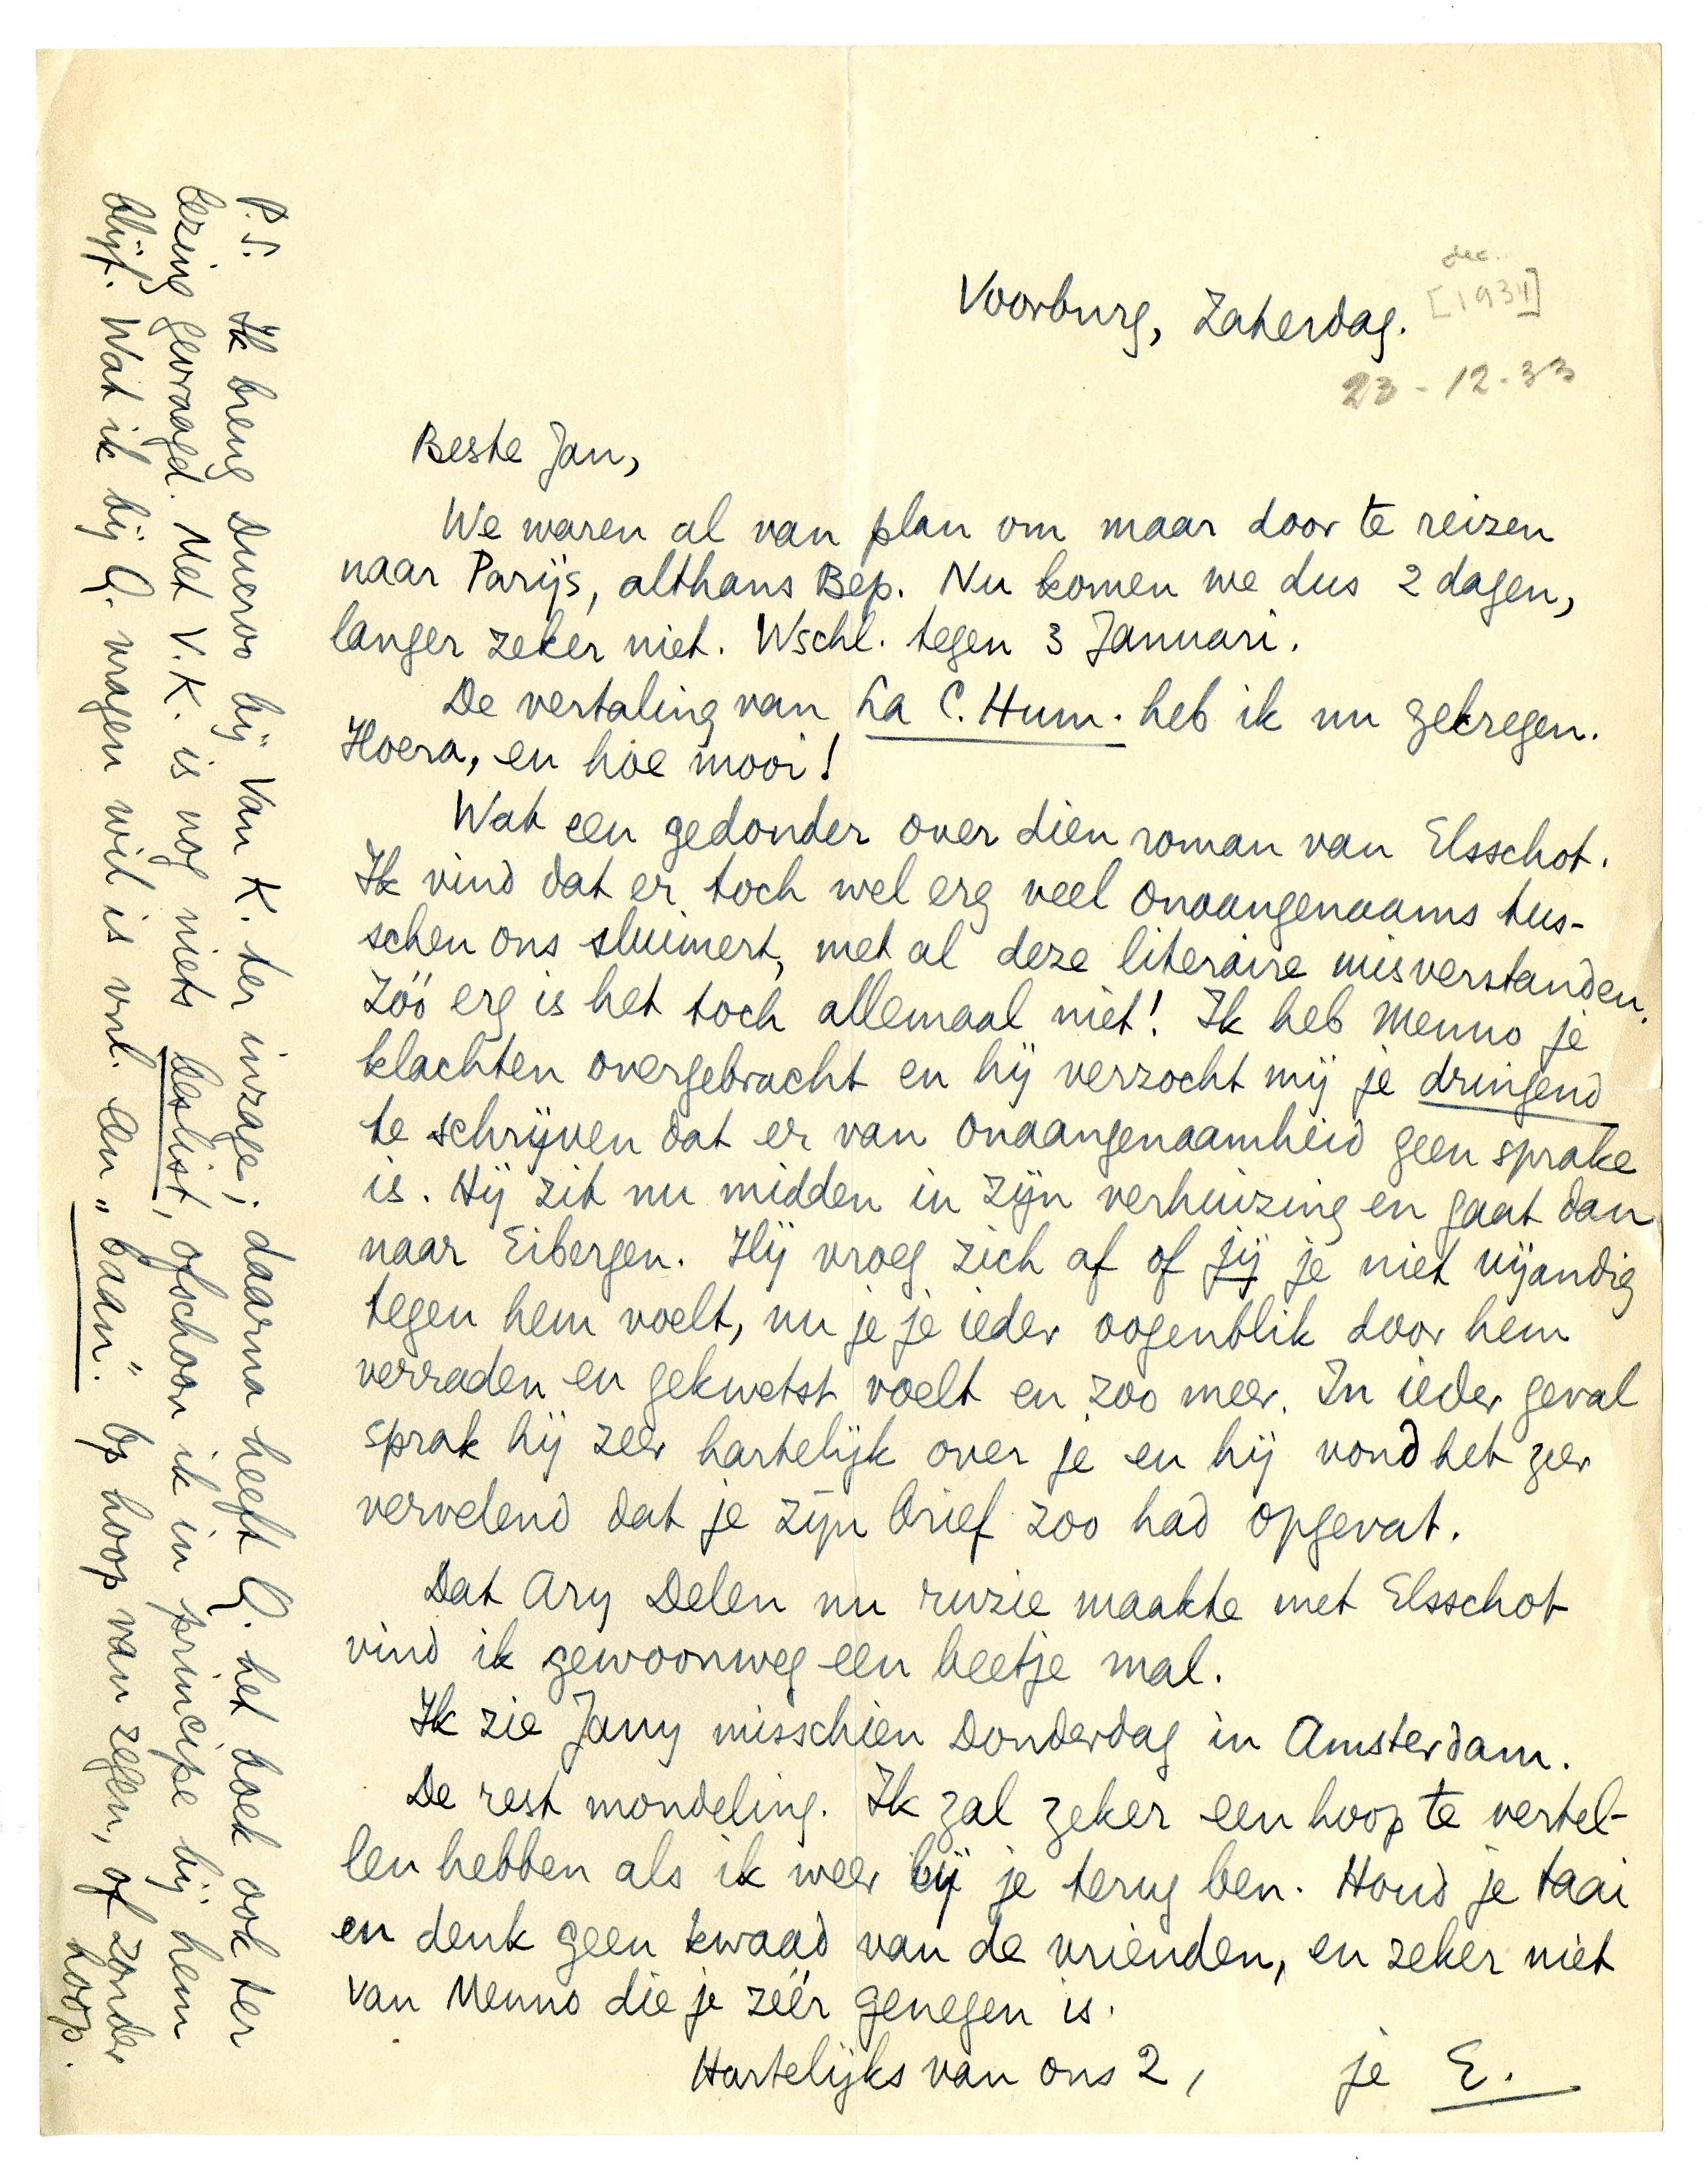 Voorburg, Zaterdag.
dec.
[1931]
23-12-33
Beste Jan,
We waren al van plan om maar door te reizen
naar Parijs, althans Bep. Nu komen we dus 2 dagen,
langer zeker niet. Wschl. tegen 3 Januari.
De vertaling van La C. Hum. heb ik nu gekregen.
Hoera, en hoe mooi!
Wat een gedonder over dien roman van Elsschot.
Ik vind dat er toch wel erg veel onaangenaams tus-
schen ons sluimert, met al deze literaire misverstanden.
Zóó erg is het toch allemaal niet! Ik heb Menno je
klachten overgebracht en hij verzocht mij je dringend
te schrijven dat er van onaangenaamheid geen sprake
is. Hij zit nu midden in zijn verhuizing en gaat dan
naar Eibergen. Hij vroeg zich af of jij je niet vijandig
tegen hem voelt, nu je je ieder oogenblik door hem
verraden en gekwetst voelt en zoo meer. In ieder geval
sprak hij zeer hartelijk over je en hij vond het zeer
vervelend dat je zijn brief zoo had opgevat.
Dat Ary Delen nu ruzie maakte met Elsschot
vind ik gewoonweg een beetje mal.
Ik zie Jany misschien Donderdag in Amsterdam.
De rest mondeling. Ik zal zeker een hoop te vertel-
len hebben als ik weer bij je terug ben. Houd je taai
en denk geen kwaad van de vrienden, en zeker niet
van Menno die je zéér genegen is.
Hartelijks van ons 2, je E.
P.S. Ik breng Ducroo bij Van K. ter inzage; daarna heeft Q. het boek ook ter
lezing gevraagd. Met V.K. is nog niets beslist, ofschoon ik in principe bij hem
blijf. Wat ik bij Q. vragen wil is vnl. een „baan". Op hoop van zegen, of zonder
hoop.